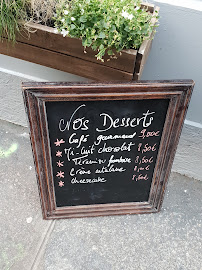 Nos Desserts
Café gourmand 9,00€
Mi-cuit chocolat 8,50€
Tiramisu framboise 8,50€
Crème catalane 8,00€
Cheesecake 8,50€